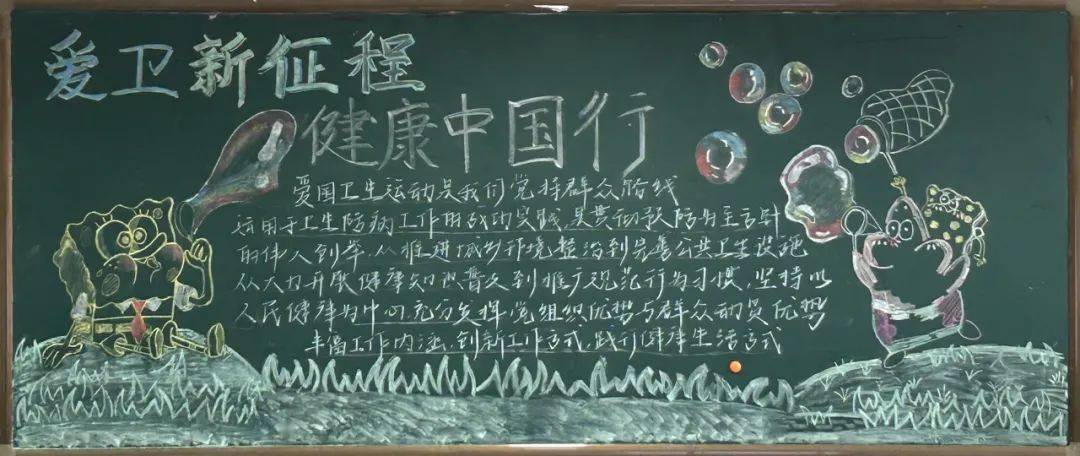 爱卫新征程
健康中国行
爱国卫生运动是我们党将群众路线
运用于卫生防病工作的成功实践,是贯彻预防为主方针
的伟大创举,从推进城乡环境整治到完善公共卫生设施
从大力开展健康知识普及到推广规范行为习惯,坚持以
人民健康为中心,充分发挥党组织优势与群众动员优势
丰富工作内涵,创新工作方式,践行健康生活方式